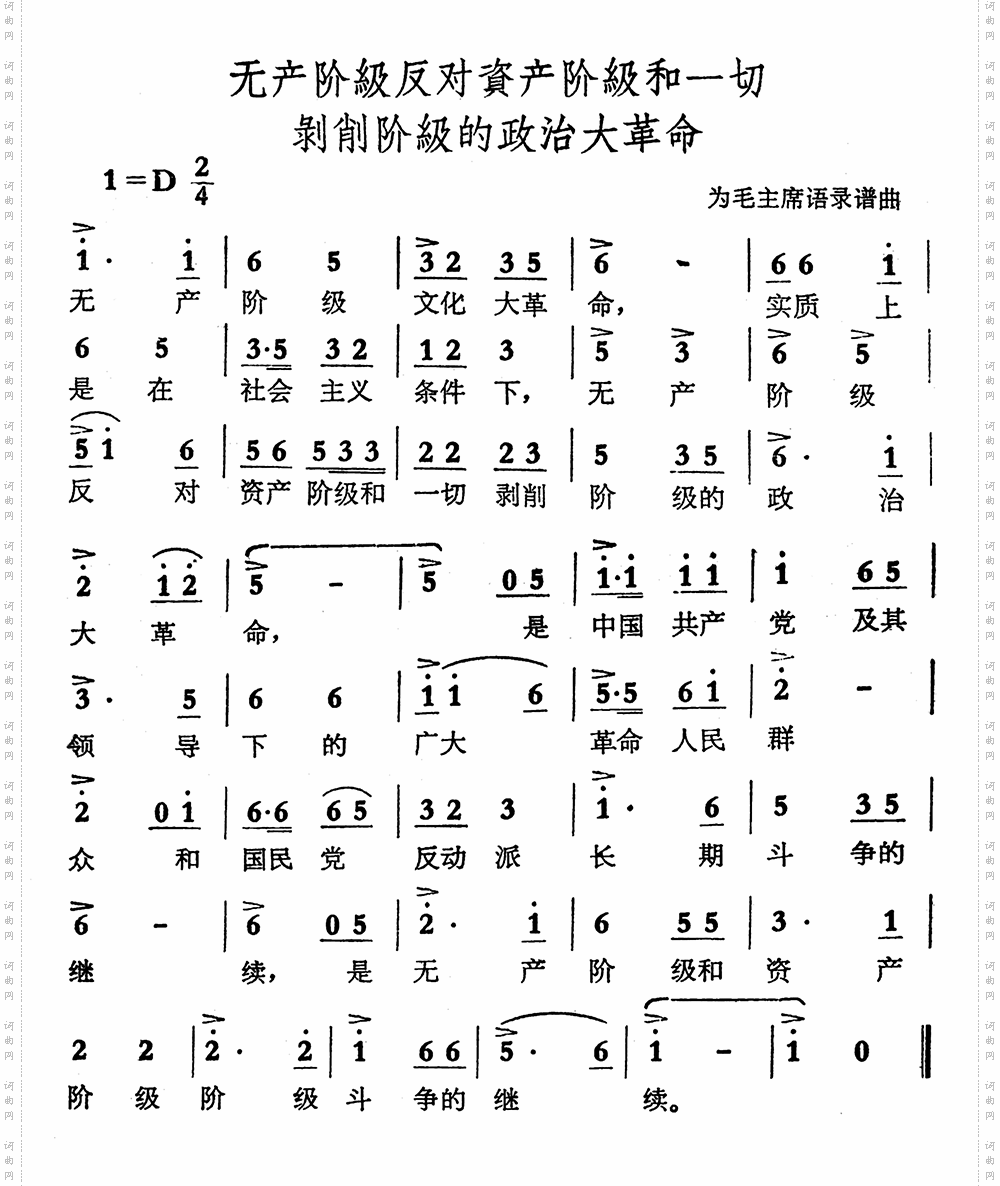 无产阶級反对資产阶級和一切
剝削阶級的政治大革命
1=D 2/4
为毛主席语录谱曲
1· 1 | 6 5 | 3 2 3 5 | 6 - | 6 6 1 |
无 产 阶 级 文化 大革 命， 实质 上
6 5 | 3·5 3 2 | 1 2 3 | 5 3 | 6 5 |
是 在 社会 主义 条件 下， 无 产 阶 级
5 1 6 | 5 6 5 3 3 | 2 2 2 3 | 5 3 5 | 6· 1 |
反 对 资产 阶级和 一切 剥削 阶 级的 政 治
2 1 2 | 5 - | 5 0 5 | 1·1 1 1 | 1 6 5 |
大 革 命， 是 中国 共产 党 及其
3· 5 | 6 6 | 1 1 6 | 5·5 6 1 | 2 - |
领 导 下 的 广大 革命 人民 群
2 0 1 | 6·6 6 5 | 3 2 3 | 1· 6 | 5 3 5 |
众 和 国民 党 反动 派 长 期 斗 争的
6 - | 6 0 5 | 2· 1 | 6 5 5 | 3· 1 |
继 续， 是 无 产 阶 级和 资 产
2 2 | 2· 2 | 1 6 6 | 5· 6 | 1 - | 1 0 ‖
阶 级 阶 级 斗 争的 继 续。